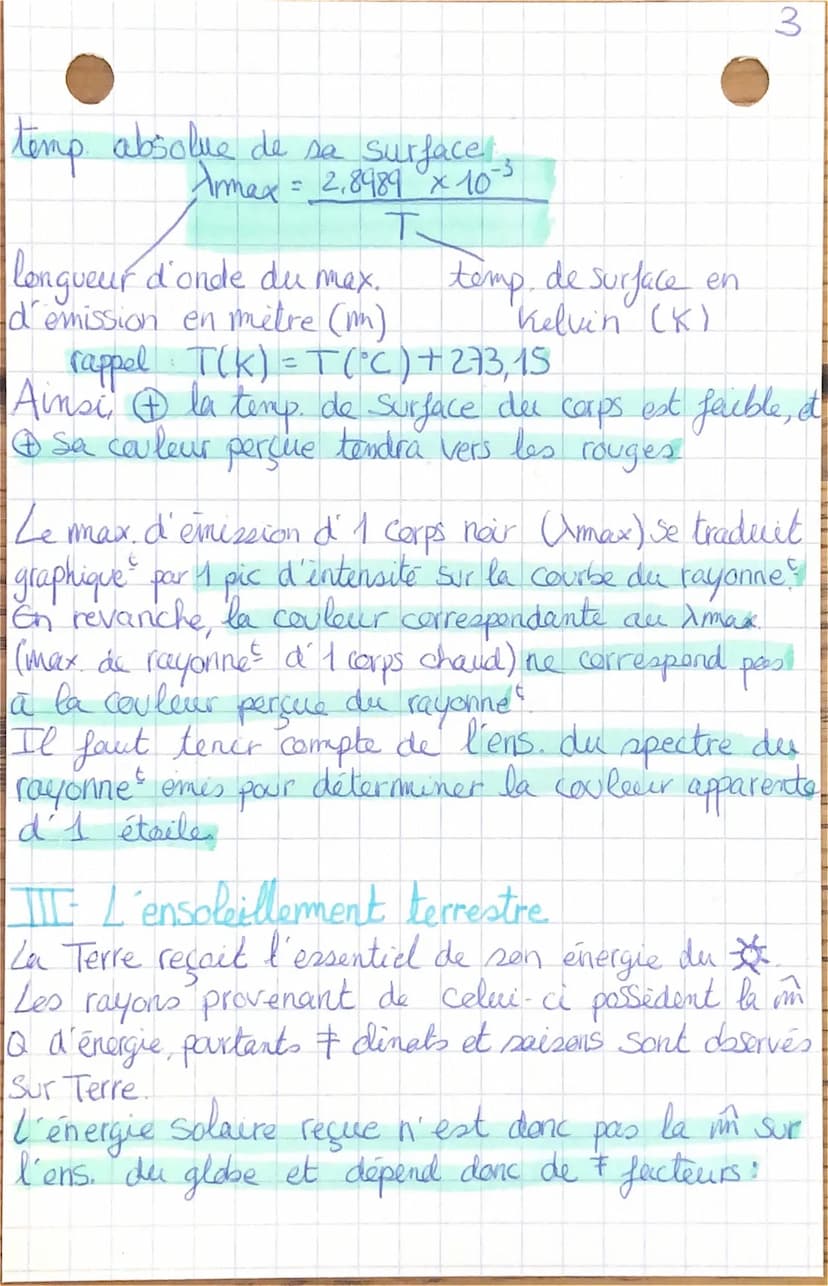 3
temp. absolue de sa surface.
λmax = 2,8989 × 10⁻³
T
longueur d'onde du max. temp. de surface en
d'émission en mètre (m) Kelvin (K)
rappel : T(K) = T(°C) + 273,15
Ainsi, ⊕ la temp. de surface du corps est faible, et
⊕ sa couleur perçue tendra vers les rouges.
Le max. d'émission d'1 corps noir (λmax) se traduit
graphiqueᵗ par 1 pic d'intensité sur la courbe du rayonneᵗ.
En revanche, la couleur correspondante au λmax.
(max. de rayonneᵗ d'1 corps chaud) ne correspond pas
à la couleur perçue du rayonneᵗ.
Il faut tenir compte de l'ens. du spectre du
rayonneᵗ émis pour déterminer la couleur apparente
d'1 étoile.
III- L'ensoleillement terrestre
La Terre reçoit l'essentiel de son énergie du ☼.
Les rayons provenant de celui-ci possèdent la m̂
Q d'énergie, pourtants ≠ climats et saisons sont observés
sur Terre.
L'énergie solaire reçue n'est donc pas la m̂ sur
l'ens. du globe et dépend donc de ≠ facteurs :